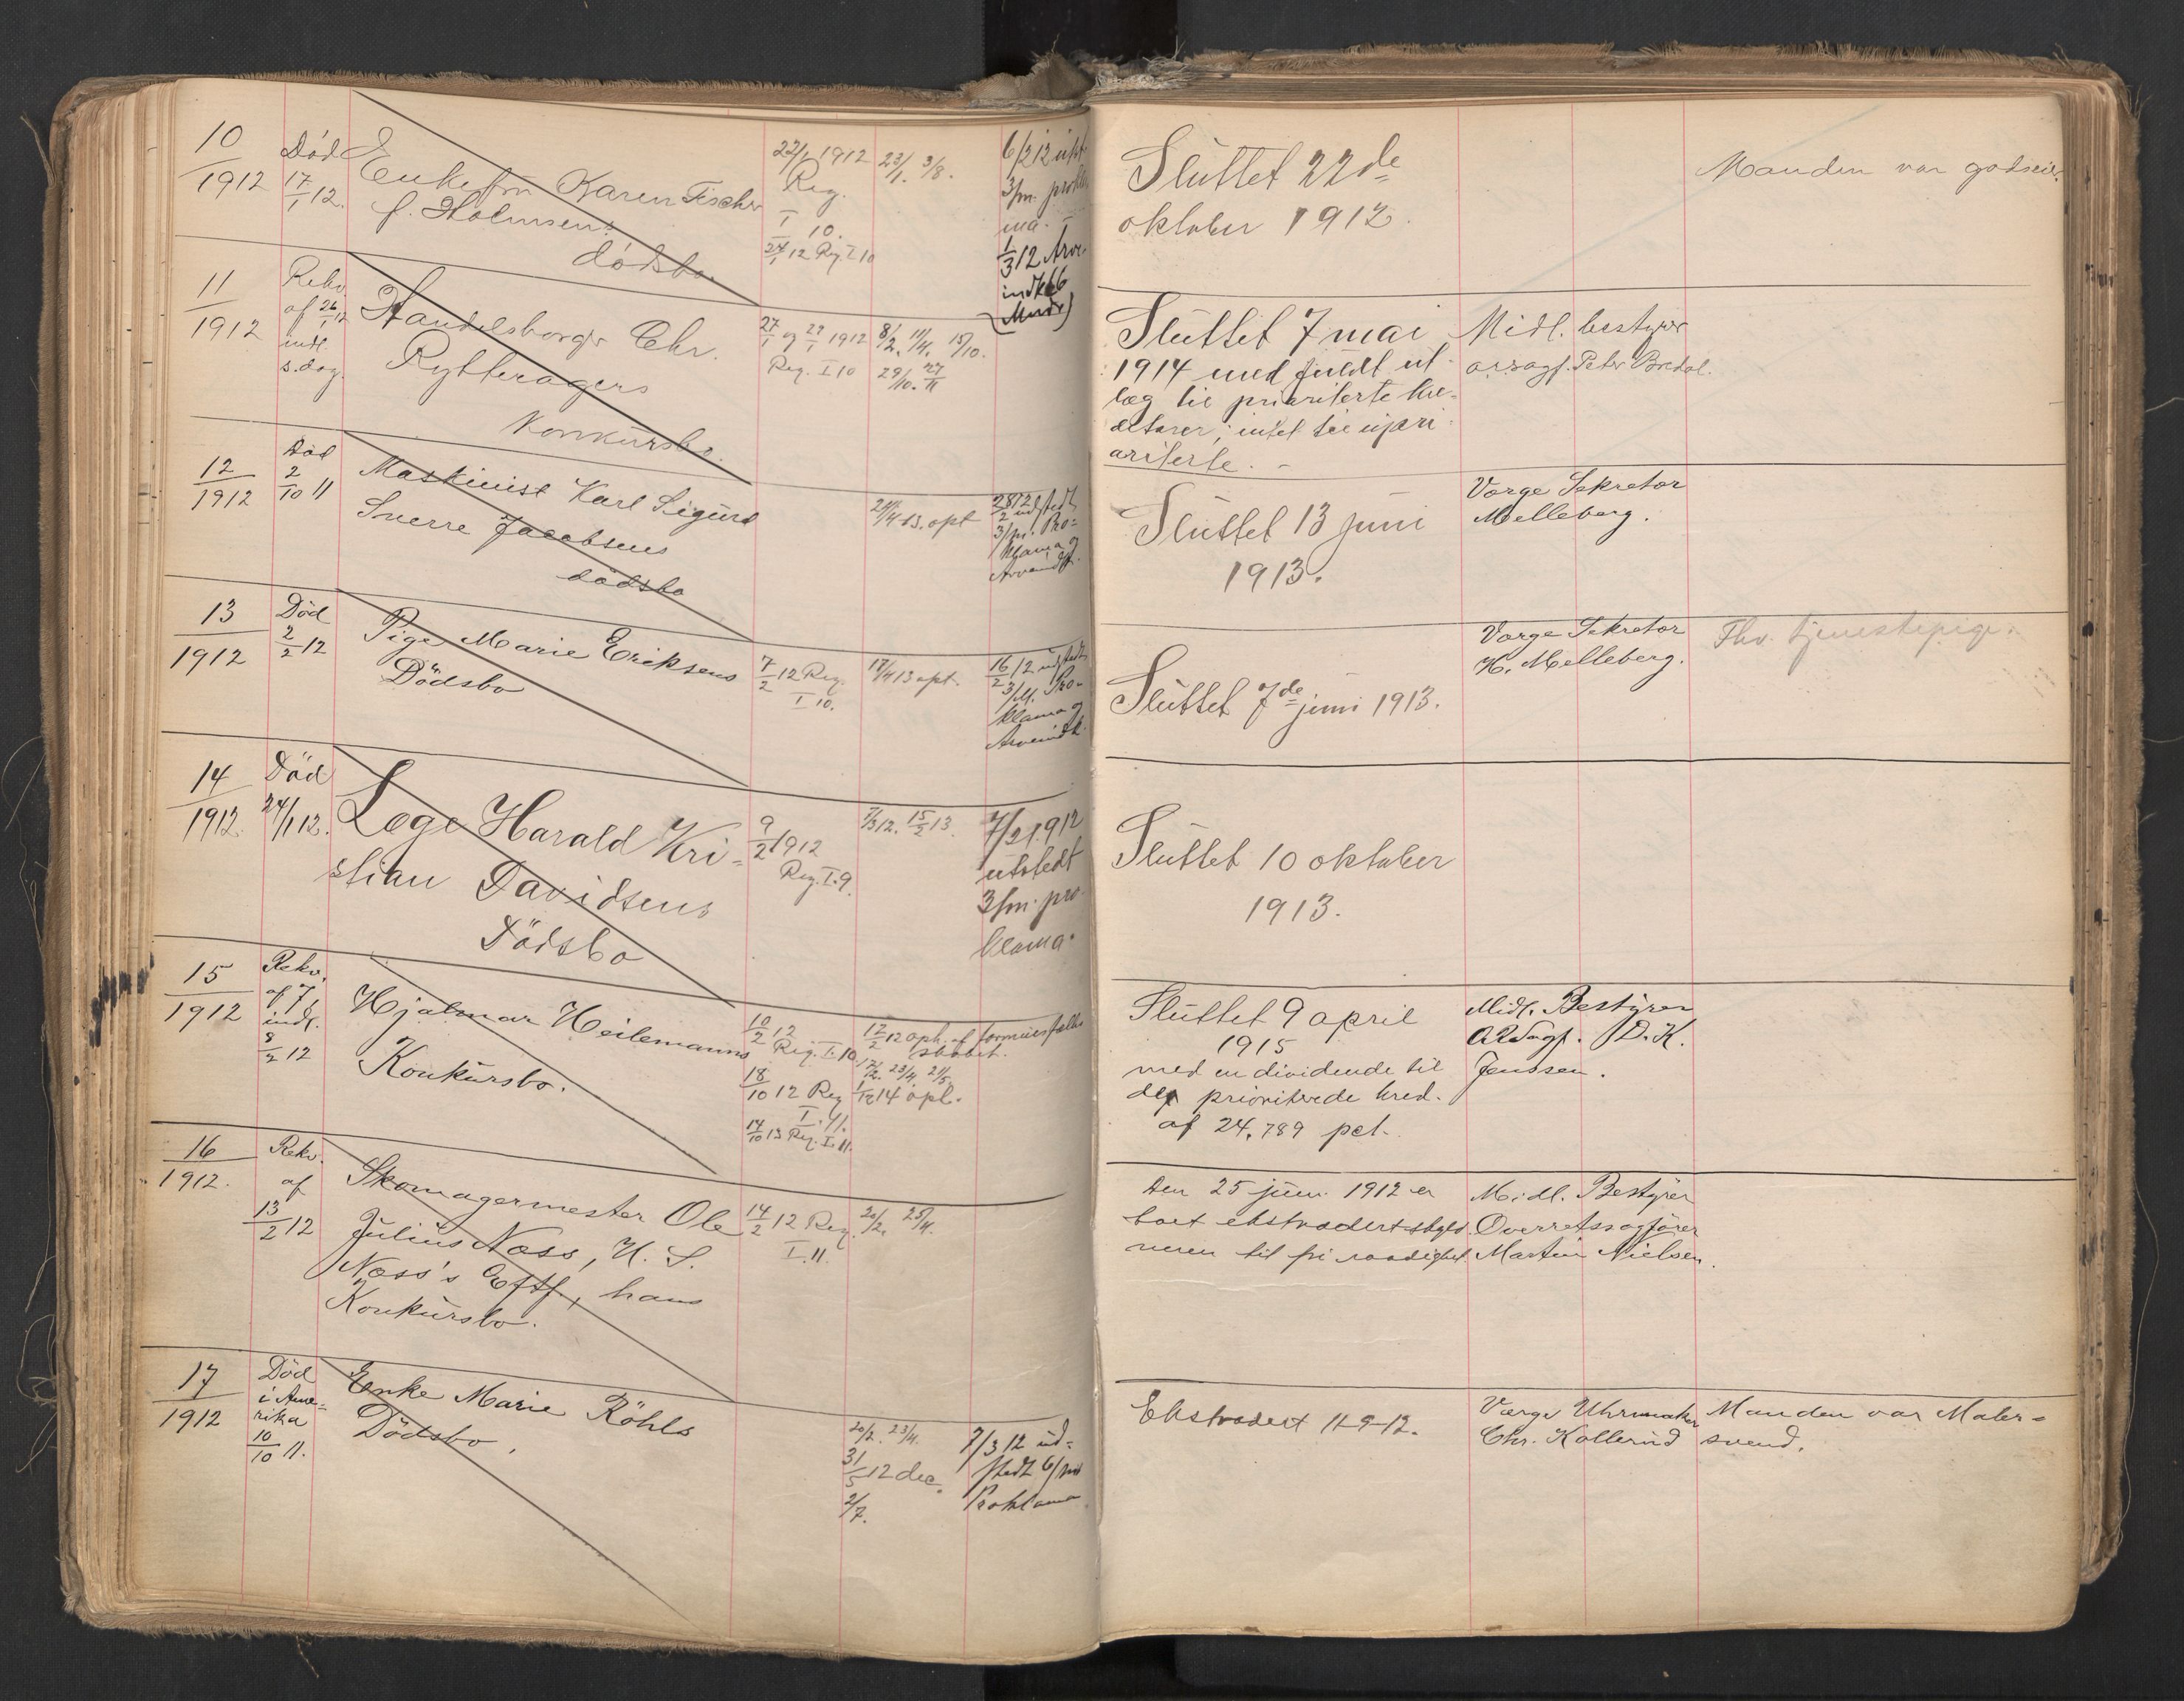 10
1912
Død
17/1 12.
Enkefru Karen Fischer
f. Holmsens
dødsbo
22/1 1912
Reg.
I 10.
24/1 12 Reg. I 10
23/1. 3/8.
6/2 12 utst.
3/m. prokla
ma.
1/3 12 Arve
indk
Sluttet 22de
oktober 1912.
Manden var godseier.
11
1912
Rekv.
af 26/1 12
indl.
s. dag.
Handelsborger Chr.
Rytteragers
Konkursbo.
27/1 og 29/1 1912
Reg. I 10
8/2. 11/4. 15/10.
29/10. 27/11
Sluttet 7 mai
1914 med fuldt ut-
læg til prioriterte kre-
ditorer; intet til upri-
oriterte. -
Midl. bestyrer
orsagf. Peter Bredal.
12
1912
Død
2/10 11
Maskinist Karl Sigurd
Sverre Jacobsens
dødsbo
24/4 13. opt
28/2 12 udstedt
3/m. Pro-
klama og
Arveindk.
Sluttet 13 juni
1913.
Værge Sekretær
Melleberg.
13
1912
Død
2/2 12
Pige Marie Eriksens
Dödsbo
7/2 12 Reg.
I 10.
17/4 13 opt.
16/2 12 udstedt
3/M. Pro-
klama og
Arveindk.
Sluttet 7de juni 1913.
Værge Sekretær
H. Melleberg.
Fhv. tjenestepige.
14
1912.
Död
24/1 12.
Læge Harald Kri-
stian Davidsens
Dödsbo
9/2 1912
Reg. I. 9.
7/3 12. 15/2 13.
7/2 1912
utstedt
3/m. pro-
klama.
Sluttet 10 oktober
1913.
15
1912
Rekv.
af 7/2
indl.
8/2 12
Hjalmar Heilemanns
Konkursbo.
10/2 12
Reg. I. 10.
18/10 12 Reg
I. 11.
14/10 13 Reg. I. 11.
12/2 12 oph. af formuesfælles
skabet.
23/4. 21/5.
14 opl.
Sluttet 9 april
1915
med en dividende til
de prioriterede kred.
af 24,789 pct.
Midl. Bestyrer
ORsagf. D. K.
Jenssen.
16
1912.
Rekv.
af
13/2 12
Skomagermester Ole
Julius Næss, H. S.
Næss's Eftf., hans
Konkursbo.
14/2 12 Reg
I. 11.
20/2. 25/4.
Den 25 juni 1912 er
boet ekstradert skyld
neren til fri raadighet.
Midl. Bestyrer
Overretssagfører
Martin Nielsen.
17
1912
Död
i Ame-
rika
10/10 11.
Enke Marie Röhls
Dödsbo,
20/2. 23/4.
31/5 12 dec.
2/7.
7/3 12 ud-
stedt 6/md
Proklama
Ekstradert 11-9-12.
Værge Uhrmaker
Chr. Kollerud
Manden var Maler-
svend.